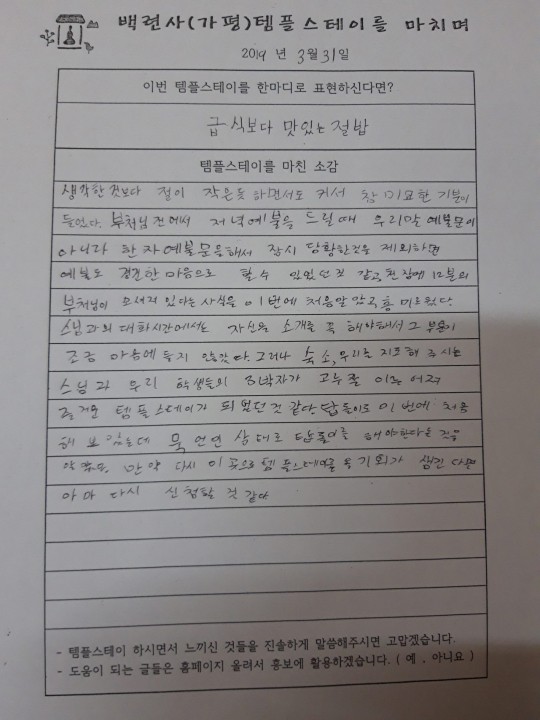 백련사(가평)템플스테이를 마치며
2019 년 3월 31일
이번 템플스테이를 한마디로 표현하신다면?
급식보다 맛있는 절밥
템플스테이를 마친 소감
생각한것보다 절이 작은듯 하면서도 커서 참 미묘한 기분이
들었다. 부처님 전에서 저녁예불을 드릴때 우리말 예불문이
아니라 한자예불문을해서 잠시 당황한것을 제외하면
예불도 경건한 마음으로 할수 있었던것 같고 천장에 12분의
부처님이 모셔져 있다는 사식을 이번에 처음알았고 흥미로웠다.
스님과의 대화시간에서는 자신을 소개를 꼭 해야해서 그 부분이
조금 마음에 들지 않았다. 그러나 숙소, 우리를 지도해 주시는
스님과 우리 학생들의 3박자가 고루 잘 이루어져
즐거운 템플스테이가 되었던것 같다. 탑돌이도 이번에 처음
해 보았는데 묵언인 상태로 탑돌이를 해야한다는 것을
만약 다시 이곳으로 템플스테이를 올 기회가 생긴다면
아마 다시 신청할 것 같다
- 템플스테이 하시면서 느끼신 것들을 진솔하게 말씀해주시면 고맙겠습니다.
- 도움이 되는 글들은 홈페이지 올려서 홍보에 활용하겠습니다. ( 예 , 아니요 )